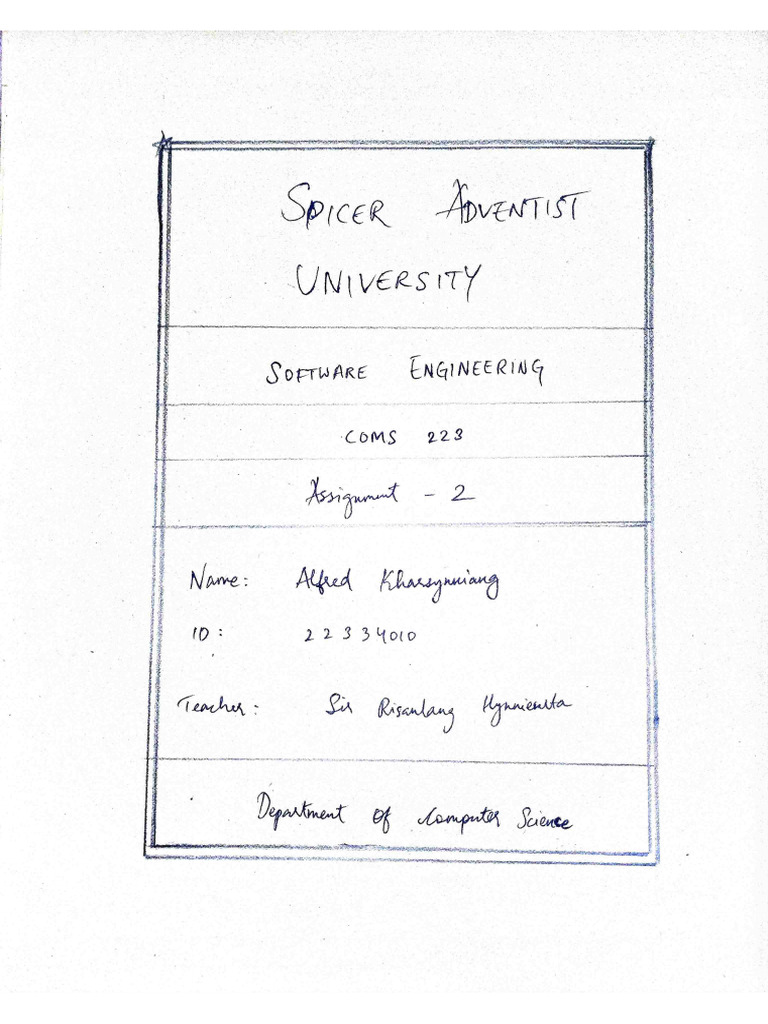 SPICER ADVENTIST
UNIVERSITY
SOFTWARE ENGINEERING
COMS 223
Assignment - 2
Name: Alfred Kharsynniang
ID: 22334010
Teacher: Sir Risanlang Hynniewta
Department Of Computer Science